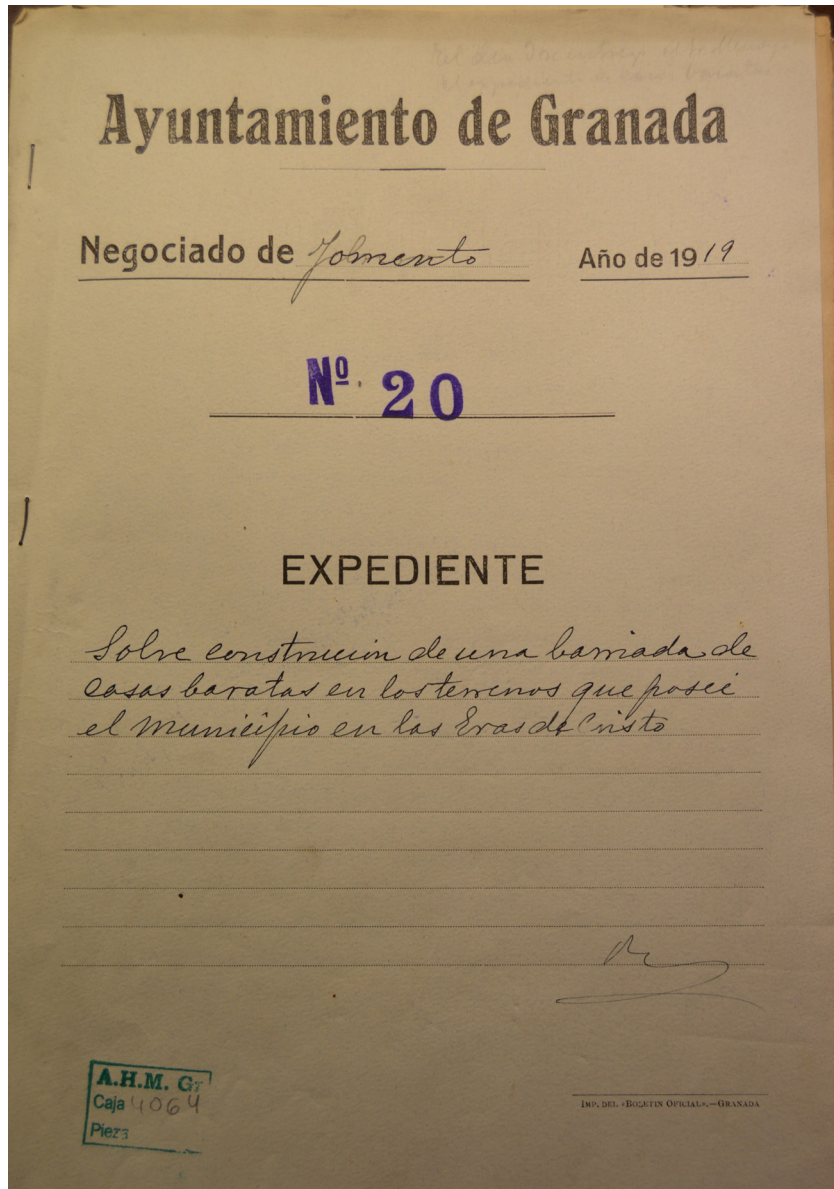 Ayuntamiento de Granada
Negociado de Fomento Año de 1919
Nº 20
EXPEDIENTE
Sobre construcion de una barriada de
casas baratas en los terrenos que posee
el municipio en las Eras de Cristo
A.H.M. Gr
Caja 4064
Pieza
IMP. DEL «BOLETIN OFICIAL».—GRANADA